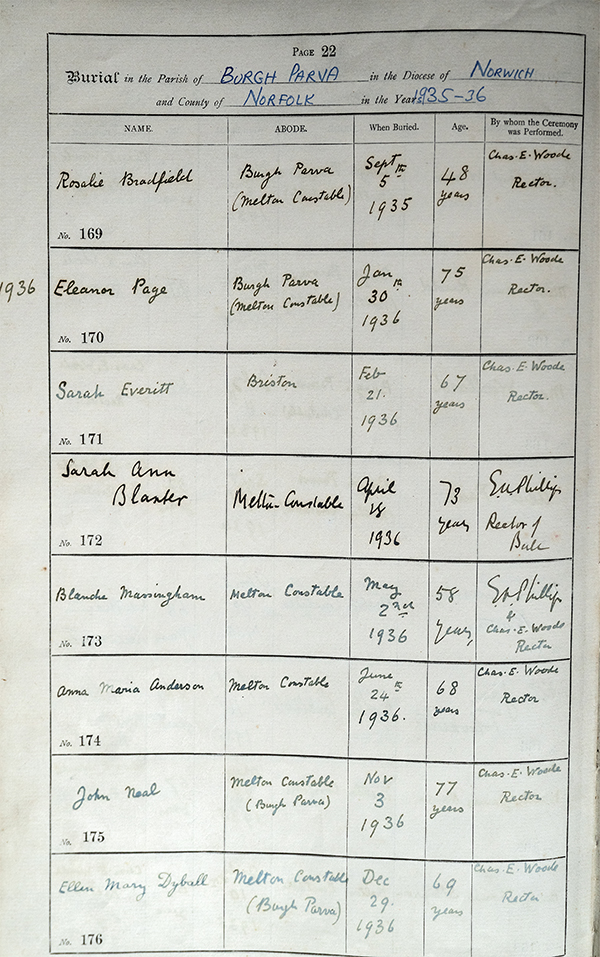 PAGE 22
Burial in the Parish of BURGH PARVA in the Diocese of NORWICH
and County of NORFOLK in the Years 1935-36
NAME. ABODE. When Buried. Age. By whom the Ceremony was Performed.
Rosalie Bradfield
No. 169
Burgh Parva
(Melton Constable)
Sept
5th
1935
48
years
Chas. E. Woode
Rector.
1936
Eleanor Page
No. 170
Burgh Parva
(Melton Constable)
Jan
30th
1936
75
years
Chas. E. Woode
Rector.
Sarah Everitt
No. 171
Briston
Feb
21.
1936
67
years
Chas. E. Woode
Rector.
Sarah Ann
Blanter
No. 172
Melton Constable
April
18
1936
73
years
Phillips
Rector of
Bale
Blanche Massingham
No. 173
Melton Constable
May
2nd
1936
58
years
Phillips
&
Chas. E. Woode
Rector
Anna Maria Anderson
No. 174
Melton Constable
June
24th
1936.
68
years
Chas. E. Woode
Rector
John Neal
No. 175
Melton Constable
(Burgh Parva)
Nov
3
1936
77
years
Chas. E. Woode
Rector
Ellen Mary Dyball
No. 176
Melton Constable
(Burgh Parva)
Dec
29.
1936
69
years
Chas. E. Woode
Rector